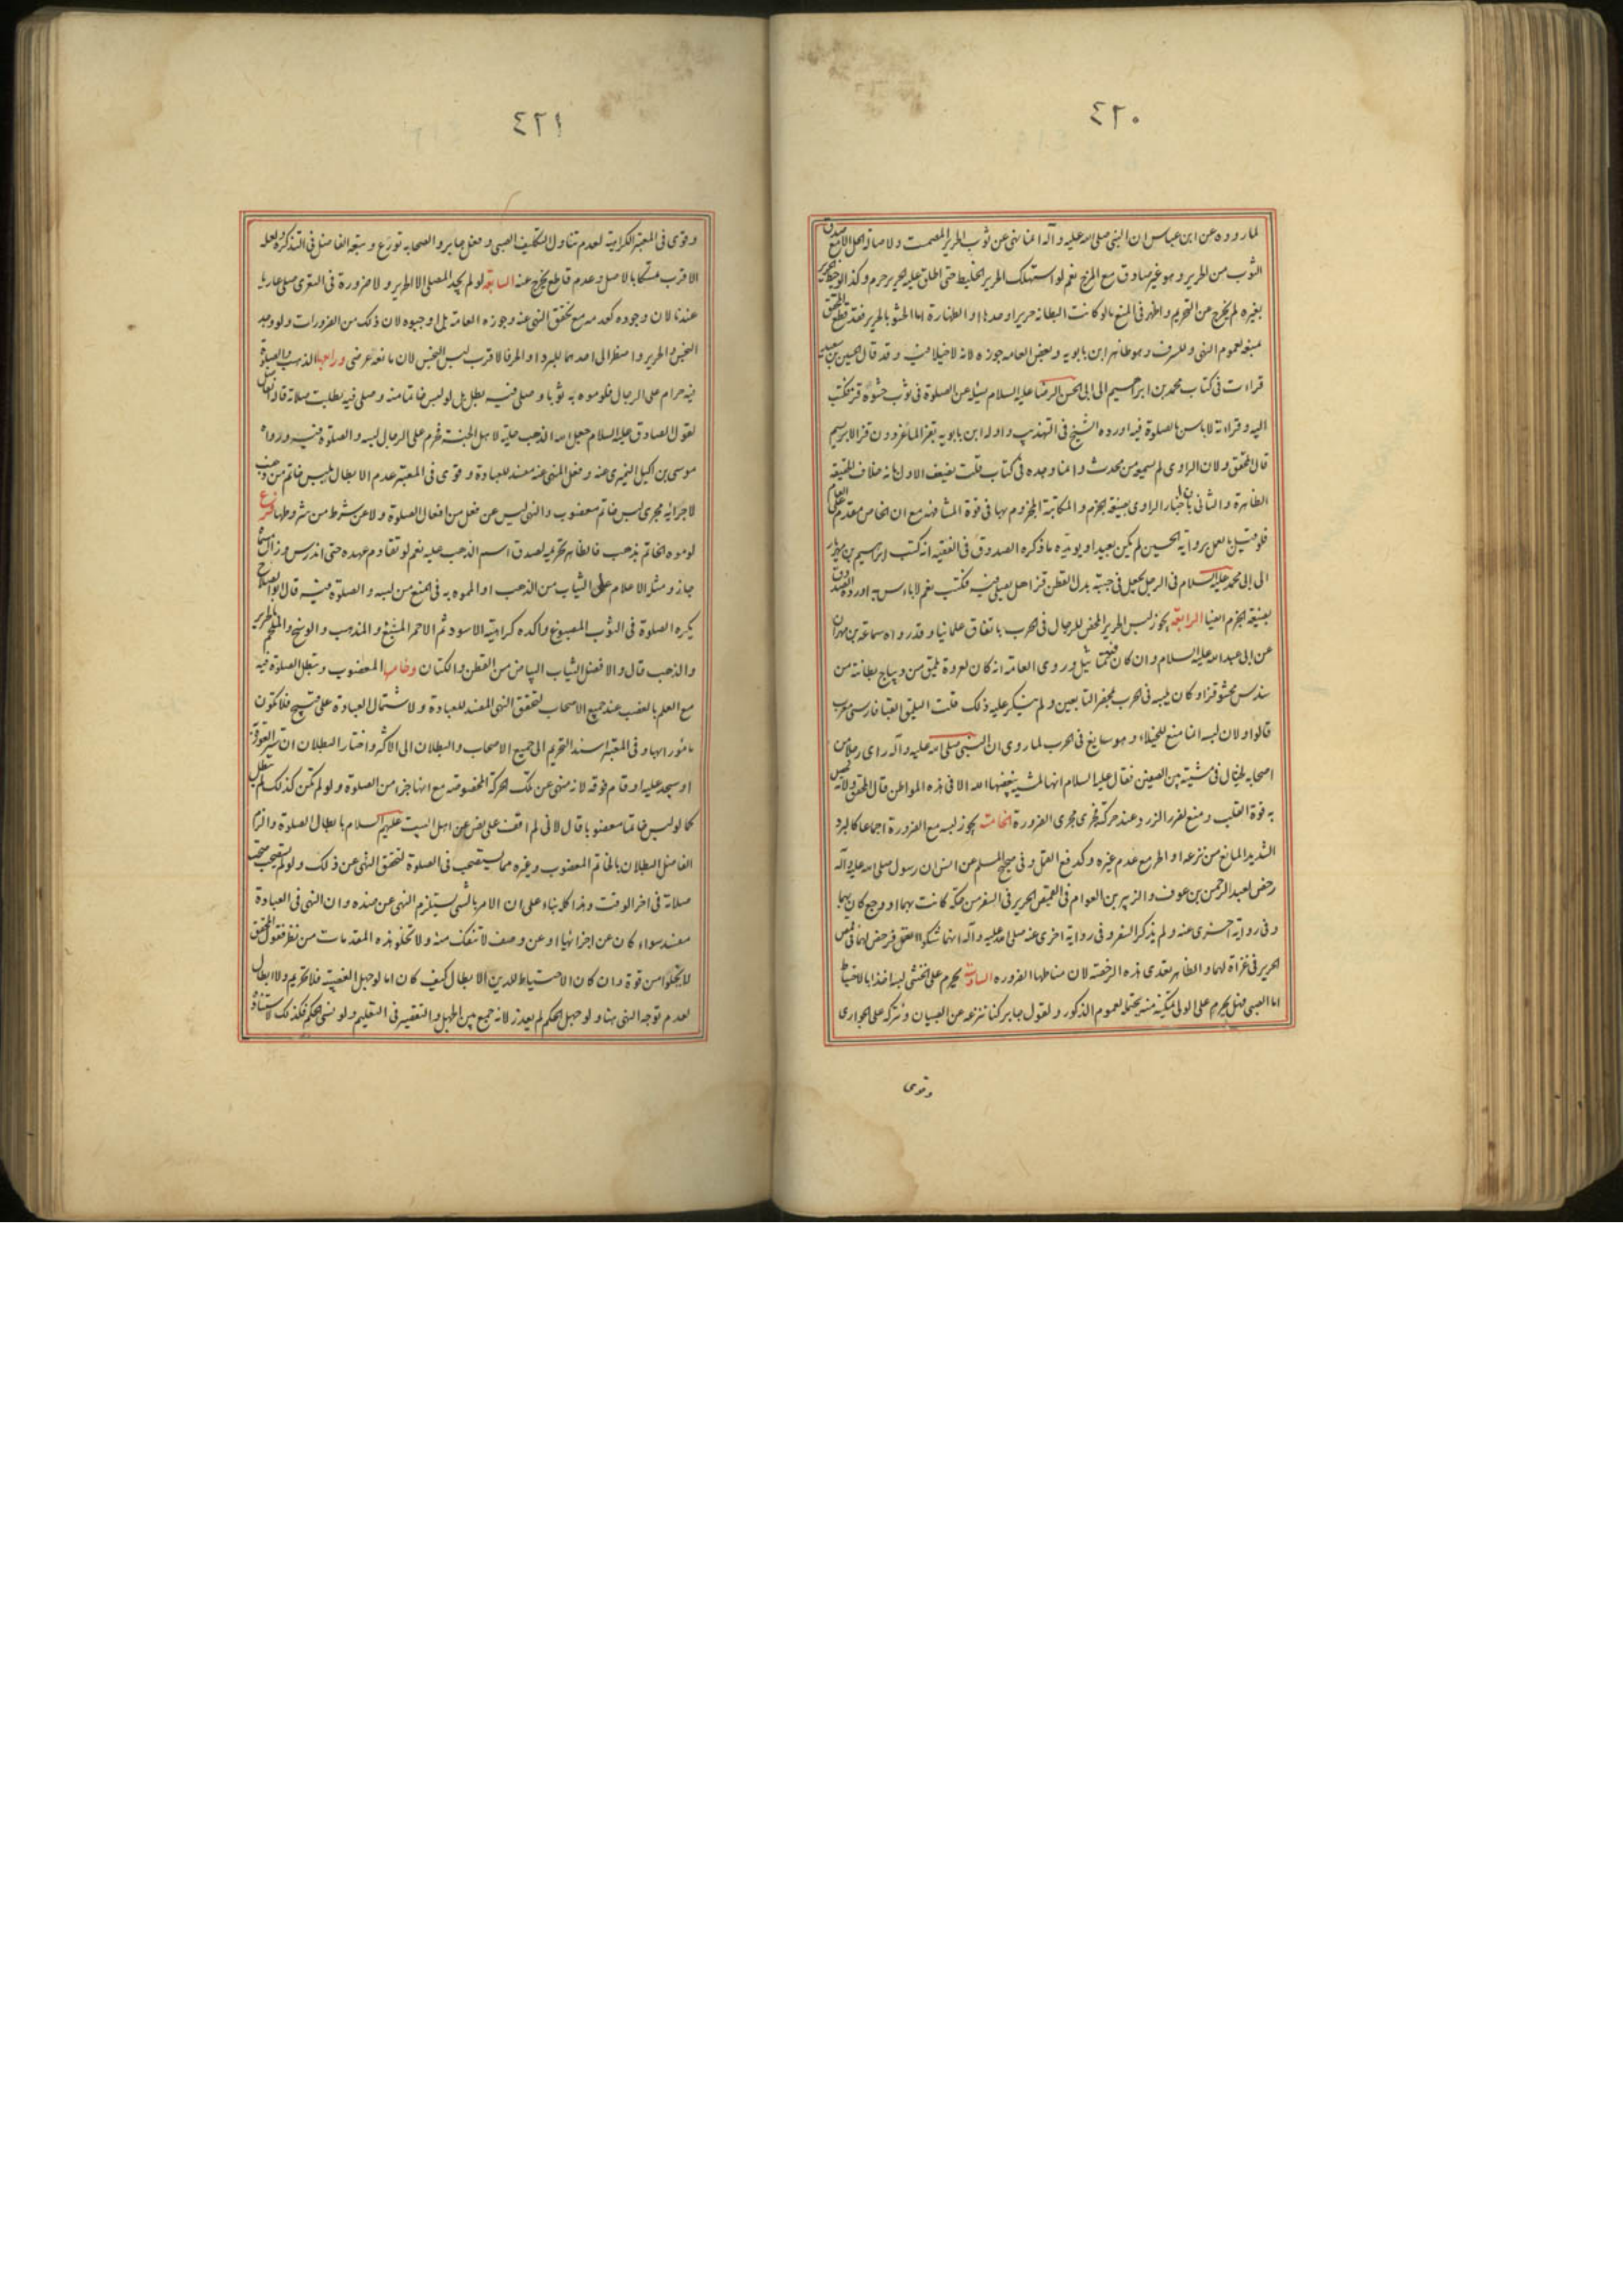 ٤٢٠
لما رووه عن ابن عباس ان النبي صلى الله عليه وآله انما نهى عن ثوب الحرير المصمت ولاصالة الحل الا مع صدق
الثوب من الحرير وهو غير صادق مع المزج نعم لو استهلك الحرير الخليط حتى اطلق عليه الحرير حرم وكذا لو خيط الحرير
بغيره لم يخرج من التحريم واظهر في المنع ما لو كانت البطانة حريرا وحدها او الظهارة اما الحشو بالحرير فقد قطع المحقق
بمنعه لعموم النهي وللسرف وهو ظاهر ابن بابويه وبعض العامه جوزه لانه لا خيلاء فيه وقد قال الحسين بن سعيد
قراءت في كتاب محمد بن ابراهيم الى ابي الحسن الرضا عليه السلام يسئله عن الصلوة في ثوب حشوه قز فكتب
اليه وقراءته لا باس بالصلوة فيه اورده الشيخ في التهذيب واوله ابن بابويه بقز الماعز دون قز الابريسم
قال المحقق ولان الراوى لم يسمعه من محدث وانما وجده في كتاب قلت يضعف الاول بانه خلاف الحقيقة
الظاهرة والثاني بان اخبار الراوى بصيغة الجزم والمكاتبة المجزوم بها في قوة المشافهة مع ان الخاص مقدم على العام
فلو قيل بالعمل برواية الحسين لم يكن بعيدا ويؤيده ما ذكره الصدوق في الفقيه انه كتب ابراهيم بن مهزيار
الى ابي محمد عليه السلام في الرجل يجعل في جبته بدل القطن قزا هل يصلي فيه فكتب نعم لا باءس به اورده الصدوق
بصيغة الجزم ايضا الرابعة يجوز لبس الحرير المحض للرجال في الحرب باتفاق علمائنا وقد رواه سماعة بن مهران
عن ابي عبد الله عليه السلام وان كان فيه تماثيل وروى العامة انه كان لعروة يلمق من ديباج بطانته من
سندس محشو قزا وكان يلبسه في الحرب بمحضر التابعين ولم ينكر عليه ذلك قلت اليلمق القبا فارسي معرب
قالوا ولان لبسه انما منع للخيلاء وهو سايغ في الحرب لما روى ان النبي صلى الله عليه وآله راى رجلا من
اصحابه يختال في مشيته بين الصفين فقال عليه السلام انها لمشية يبغضها الله الا في هذه المواطن قال المحقق ولانه يحصل
به قوة القلب ومنع لضرر الزرد عند حركته فجرى مجرى الضرورة الخامسة يجوز لبسه مع الضرورة اجماعا كالبرد
الشديد المانع من نزعه او الحر مع عدم غيره وكدفع القمل وفي صحيح المسلم عن انس ان رسول صلى الله عليه وآله
رخص لعبد الرحمن بن عوف والزبير بن العوام في القميص الحرير في السفر من حكة كانت بهما او وجع كان بهما
وفي رواية اخرى عنه ولم يذكر السفر وفي رواية اخرى عنه صلى الله عليه وآله انهما شكوا القمل فرخص لهما في قمص
الحرير في غزاة لهما والظاهر تعدى هذه الرخصة لان مناطها الضروره السادسة يحرم على الخنثى لبسه اخذا بالاحتياط
اما الصبي فهل يحرم على الولى تمكينه منه يحتمله لعموم الذكور ولقول جابر كنا ننزعه عن الصبيان ونتركه على الجوارى
وقوى
٤٢١
وقوى في المعتبر الكراهية لعدم تناول التكليف الصبى وفعل جابر والصحابه تورع وتبعه الفاضل في التذكرة ولعله
الاقرب تمسكا بالاصل وعدم قاطع يخرج عنه السابعة لو لم يجد المصلى الا الحرير ولا ضرورة في التعرى صلى عاريا
عندنا لان وجوده كعدمه مع تحقق النهى عنه وجوزه العامة بل اوجبوه لان ذلك من الضرورات ولو وجد
النجس والحرير واضطر الى احدهما للبرد او الحر فالاقرب لبس النجس لان مانعه عرضى ورابعها الذهب والصلوة
فيه حرام على الرجال فلو موه به ثوبا وصلى فيه بطل بل لو لبس خاتما منه وصلى فيه بطلت صلاته قاله الفاضل
لقول الصادق عليه السلام جعل الله الذهب حلية لاهل الجنة فحرم على الرجال لبسه والصلوة فيه ورواه
موسى بن اكيل النميرى عنه وفعل المنهى عنه مفسد للعبادة وقوى في المعتبر عدم الابطال بلبس خاتم من ذهب
لاجرائه مجرى لبس خاتم مغصوب والنهى ليس عن فعل من افعال الصلوة ولا عن شرط من شروطها فرع
لو موه الخاتم بذهب فالظاهر تحريمه لصدق اسم الذهب عليه نعم لو تقادم عهده حتى اندرس وزال مسماه
جاز ومثله الاعلام على الثياب من الذهب او المموه به في المنع من لبسه والصلوة فيه قال ابو الصلاح
يكره الصلوة في الثوب المصبوغ واكده كراهية الاسود ثم الاحمر المشبع والمذهب والموشح والملحم بالحرير
والذهب قال والافضل الثياب البياض من القطن والكتان وخامسها المغضوب وتبطل الصلوة فيه
مع العلم بالغصب عند جميع الاصحاب لتحقق النهى المفسد للعبادة ولاشتمال العبادة على قبيح فلا تكون
مأمورا بها وفي المعتبر اسند التحريم الى جميع الاصحاب والبطلان الى الاكثر واختار البطلان ان ستر العورة
او سجد عليه او قام فوقه لانه منهى عن تلك الحركة المخصوصة مع انها جزء من الصلوة ولو لم تكن كذلك لم تبطل
كما لو لبس خاتما مغصوبا قال لانى لم اقف على نص عن اهل البيت عليهم السلام بابطال الصلوة والزم
الفاضل البطلان بالخاتم المغصوب وغيره مما يستصحب في الصلوة لتحقق النهى عن ذلك ولو لم يستصحب صحت
صلاته في اخر الوقت وهذا كله بناء على ان الامر بالشى يستلزم النهى عن ضده وان النهى في العبادة
مفسد سواء كان عن اجزائها او عن وصف لا تنفك منه ولا تخلو هذه المقدمات من نظر فقول المحقق
لا يخلوا من قوة وان كان الاحتياط للدين الابطال كيف كان اما لو جهل الغصبية فلا تحريم ولا ابطال
لعدم توجه النهى هنا ولو جهل الحكم لم يعذر لانه جمع بين الجهل والتقصير في التعليم ولو نسى الحكم فكذلك لاستناده